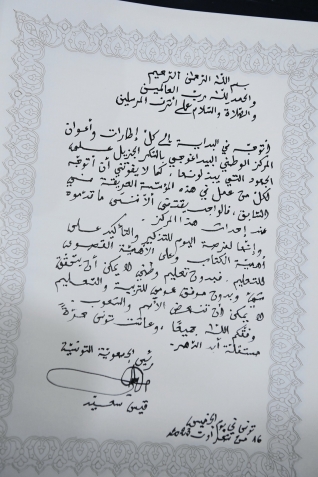 بسم الله الرحمان الرحيم
والحمد لله رب العالمين
والصلاة والسلام على أشرف المرسلين
أتوجّه في البداية إلى كلّ إطارات وأعوان
المركز الوطني البيداغوجي بالشكر الجزيل على
الجهود التي يبذلونها، كما لا يفوتني أن أتوجّه
لكلّ من عمل في هذه المؤسّسة العريقة في
السّابق، فالواجب يقتضي ألاّ ننسى ما قدّموه
منذ إحداث هذا المركز.
وإنّها لفرصة اليوم للتذكير والتأكيد على
أهميّة الكتاب وعلى الأهميّة القصوى
للتعليم. فبدون تعليم وطني لا يمكن أن يتحقّق
شيء وبدون مرفق عمومي للتربية والتعليم
لا يمكن أن تنهض الأمم والشعوب.
وفّقكم اللّه جميعًا، وعاشت تونس حرّةً
مستقلّة أبد الدّهر.
رئيس الجمهورية التونسية
قيس سعيّد
تونس في يوم الخميس
16 من شهر أوت 2023